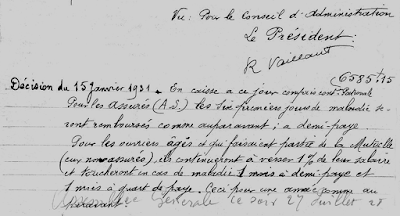 Vu: Pour le Conseil d'Administration
Le Président:
R Vaillant
(6585.15
Décision du 15 janvier 1931. En caisse à ce jour compris cont. Nationale
Pour les assurés (A.S.) les six premiers jours de maladie se-
ront remboursés comme auparavant; à demi-paye
Pour les ouvriers âgés et qui faisaient partie de la Mutuelle
(eux non assurés), ils continueront à verser 1% de leur salaire
et toucheront en cas de maladie 1 mois à demi-paye et
1 mois à quart de paye. Ceci pour une année comme au
paravant
Assemblée Générale ce soir 27 juillet